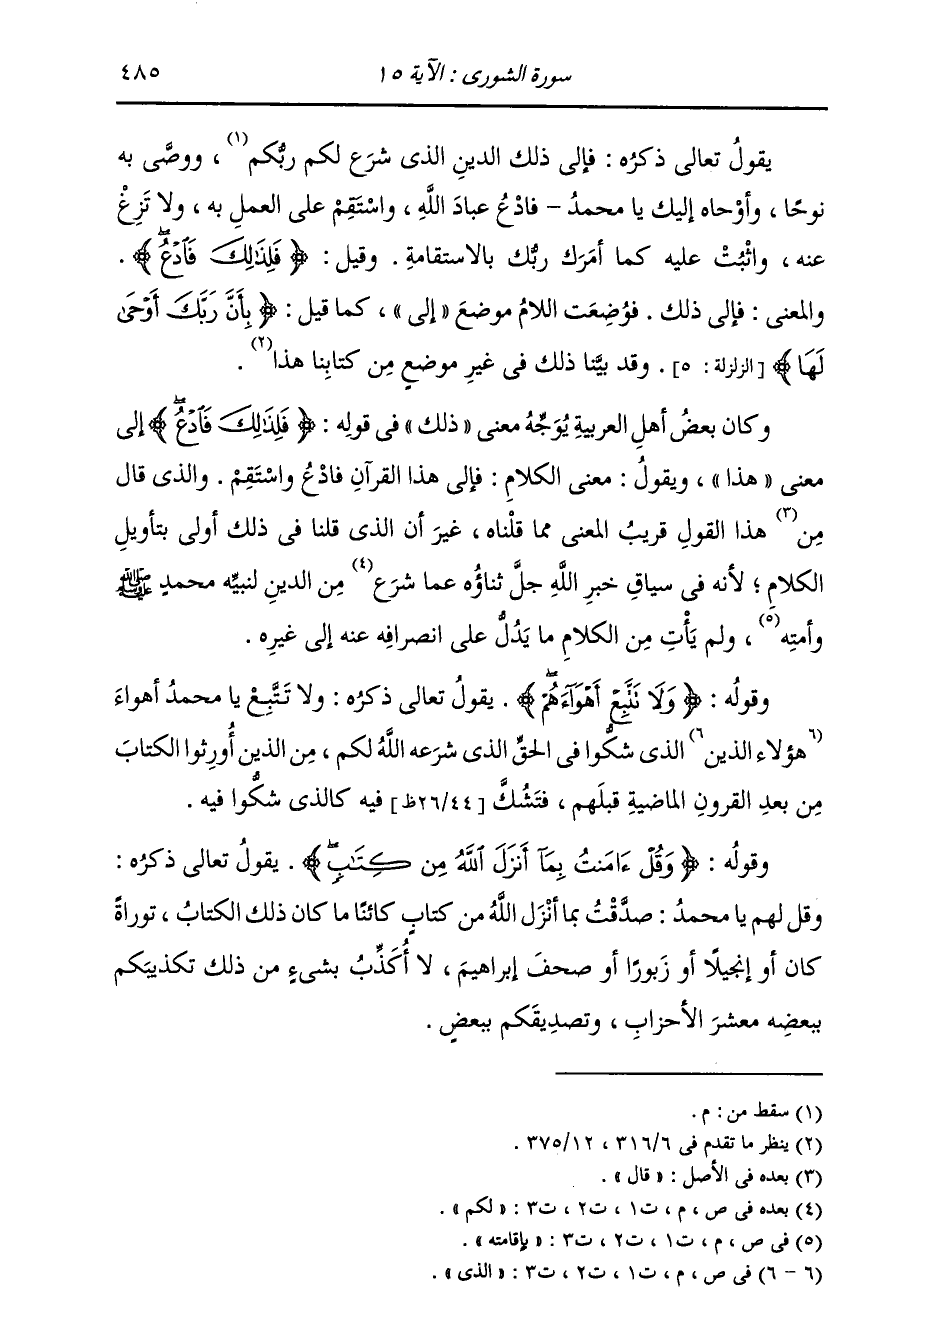 سورة الشورى : الآية ١٥ ٤٨٥
يقولُ تعالى ذكرُه : فإلى ذلك الدينِ الذى شرَع لكم ربُّكم(١) ، ووصَّى به
نوحًا ، وأوْحاه إليك يا محمدُ – فادْعُ عبادَ اللَّهِ ، واسْتَقِمْ على العملِ به ، ولا تَزِغْ
عنه ، واثْبُتْ عليه كما أمَرَك ربُّك بالاستقامةِ . وقيل : ﴿ فَلِذَٰلِكَ فَٱدْعُۖ ﴾ .
والمعنى : فإلى ذلك . فوُضِعَت اللامُ موضعَ « إلى » ، كما قيل : ﴿ بِأَنَّ رَبَّكَ أَوْحَىٰ
لَهَا ﴾ [الزلزلة : ٥] . وقد بيَّنا ذلك فى غيرِ موضعٍ مِن كتابِنا هذا(٢) .
وكان بعضُ أهلِ العربيةِ يُوَجِّهُ معنى « ذلك » فى قولِه : ﴿ فَلِذَٰلِكَ فَٱدْعُۖ ﴾ إلى
معنى « هذا » ، ويقولُ : معنى الكلامِ : فإلى هذا القرآنِ فادْعُ واسْتَقِمْ . والذى قال
مِن(٣) هذا القولِ قريبُ المعنى مما قلْناه ، غيرَ أن الذى قلنا فى ذلك أولى بتأويلِ
الكلامِ ؛ لأنه فى سياقِ خبرِ اللَّهِ جلَّ ثناؤُه عما شرَع(٤) مِن الدينِ لنبيِّه محمدٍ ﷺ
وأمتِه(٥) ، ولم يَأْتِ مِن الكلامِ ما يَدُلُّ على انصرافِه عنه إلى غيرِه .
وقولُه : ﴿ وَلَا نَتَّبِعْ أَهْوَآءَهُمْۖ ﴾ . يقولُ تعالى ذكرُه : ولا تَتَّبِعْ يا محمدُ أهواءَ
(٦هؤلاء الذين٦) الذى شكُّوا فى الحقِّ الذى شرَعه اللَّهُ لكم ، مِن الذين أُورِثوا الكتابَ
مِن بعدِ القرونِ الماضيةِ قبلَهم ، فتَشُكَّ [٢٦/٤٤ظ] فيه كالذى شكُّوا فيه .
وقولُه : ﴿ وَقُلْ ءَامَنتُ بِمَآ أَنزَلَ ٱللَّهُ مِن كِتَٰبٍۖ ﴾ . يقولُ تعالى ذكرُه :
وقل لهم يا محمدُ : صدَّقْتُ بما أنْزَل اللَّهُ من كتابٍ كائنًا ما كان ذلك الكتابُ ، توراةً
كان أو إنجيلًا أو زَبورًا أو صحفَ إبراهيمَ ، لا أُكَذِّبُ بشىءٍ من ذلك تكذيبَكم
ببعضِه معشرَ الأحزابِ ، وتصديقَكم ببعضٍ .
(١) سقط من : م .
(٢) ينظر ما تقدم فى ٣١٦/٦ ، ٣٧٥/١٢ .
(٣) بعده فى الأصل : « قال » .
(٤) بعده فى ص ، م ، ت١ ، ت٢ ، ت٣ : « لكم » .
(٥) فى ص ، م ، ت١ ، ت٢ ، ت٣ : « بإقامته » .
(٦ – ٦) فى ص ، م ، ت١ ، ت٢ ، ت٣ : « الذى » .